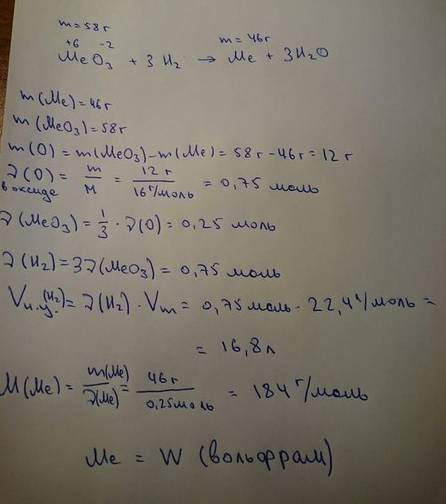 m=58г m=46г
+6 -2
MeO₃ + 3H₂ → Me + 3H₂O
m(Me)=46г
m(MeO₃)=58г
m(O) = m(MeO₃)-m(Me) = 58г-46г=12г
ν(O) = m/M = 12г/16г/моль = 0,75 моль
в оксиде
ν(MeO₃)=1/3·ν(O)=0,25 моль
ν(H₂)=3ν(MeO₃)=0,75 моль
Vн.у.(H₂)=ν(H₂)·Vm=0,75 моль·22,4 л/моль=
= 16,8л
M(Me) = m(Me)/ν(Me) = 46г/0,25моль = 184 г/моль
Me = W (вольфрам)